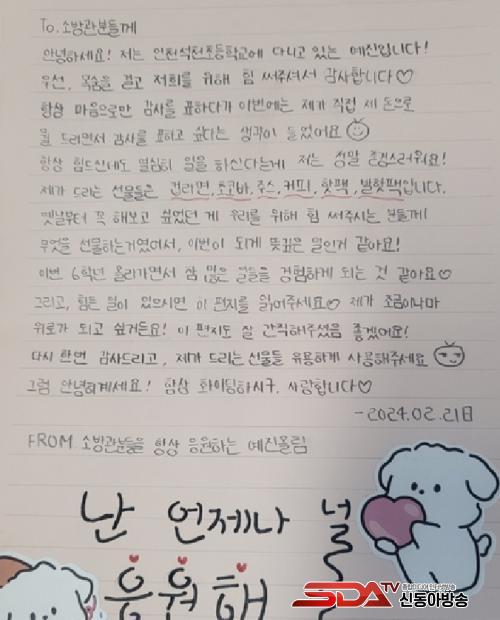 To.소방관분들께
안녕하세요! 저는 인천석천초등학교에 다니고 있는 예진입니다!
우선, 목숨을 걸고 저희를 위해 힘 써주셔서 감사합니다♡
항상 마음으로만 감사를 표하다가 이번에는 제가 직접 제 돈으로
뭘 드리면서 감사를 표하고 싶다는 생각이 들었어요
항상 힘드신데도 열심히 일을 하신다는게 저는 정말 존경스러워요!
제가 드리는 선물들은 컵라면, 초코바, 주스, 커피, 핫팩, 발핫팩입니다.
옛날부터 꼭 해보고 싶었던 게 우리를 위해 힘 써주시는 분들께
무엇을 선물하는거였어서, 이번이 되게 뜻깊은 일인거 같아요!
이번 6학년 올라가면서 참 많은 일들을 경험하게 되는 것 같아요♡
그리고, 힘든 일이 있으시면 이 편지를 읽어주세요♡ 제가 조금이나마
위로가 되고 싶거든요! 이 편지도 잘 간직해주셨음 좋겠어요!
다시 한번 감사드리고, 제가 드리는 선물들 유용하게 사용해주세요
그럼 안녕히계세요! 항상 화이팅하시구, 사랑합니다♡
-2024.02.21日
FROM 소방관분들을 항상 응원하는 예진올림
난 언제나 널
응원해
SDATV 신동아방송